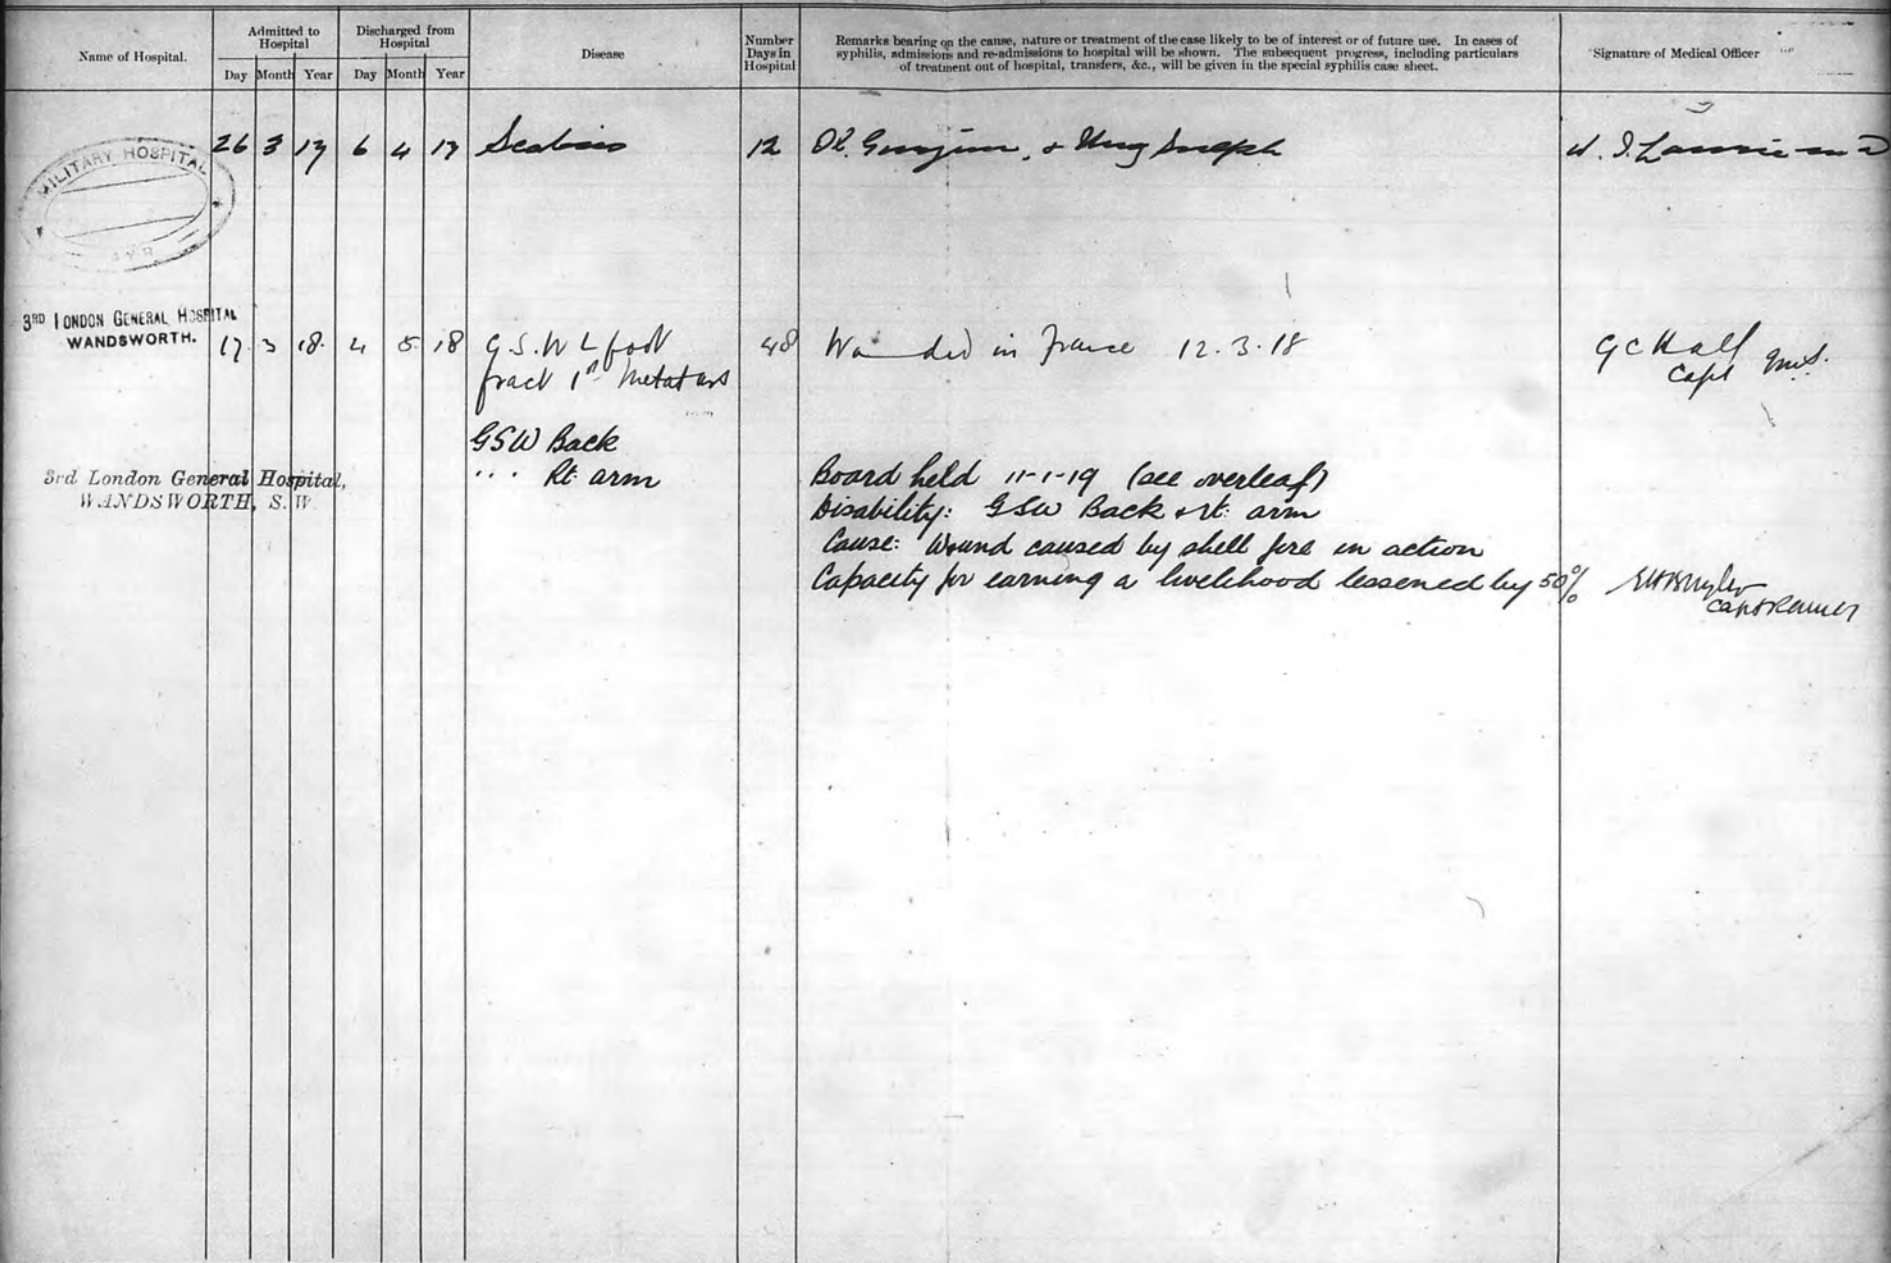 Name of Hospital.
Admitted to Hospital
Day Month Year
Discharged from Hospital
Day Month Year
Disease
Number Days in Hospital
Remarks bearing on the cause, nature or treatment of the case likely to be of interest or of future use. In cases of
syphilis, admissions and re-admissions to hospital will be shown. The subsequent progress, including particulars
of treatment out of hospital, transfers, &c., will be given in the special syphilis case sheet.
Signature of Medical Officer
MILITARY HOSPITAL
AYR
26 3 17 6 4 17 Scabies 12 Ol. & Ung Sulph
3RD LONDON GENERAL HOSPITAL
WANDSWORTH.
17 3 18 4 5 18 G.S.W L foot 48 Wounded in France 12.3.18 G C Hall
fract 1st Metatars Capt
GSW Back
" " Rt arm
3rd London General Hospital,
WANDSWORTH, S.W.
Board held 11-1-19 (see overleaf)
Disability: GSW Back & rt: arm
Cause: Wound caused by shell fire in action
Capacity for earning a livelihood lessened by 50%
Capt